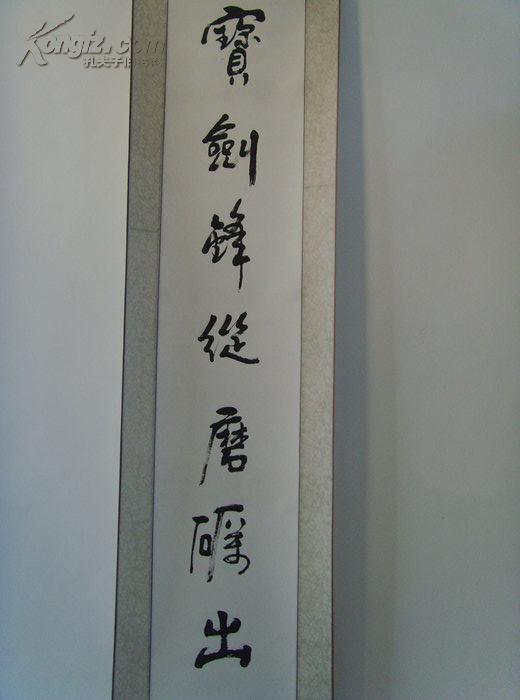 寶劍鋒從磨礪出
Kongfz.com
孔夫子旧书网